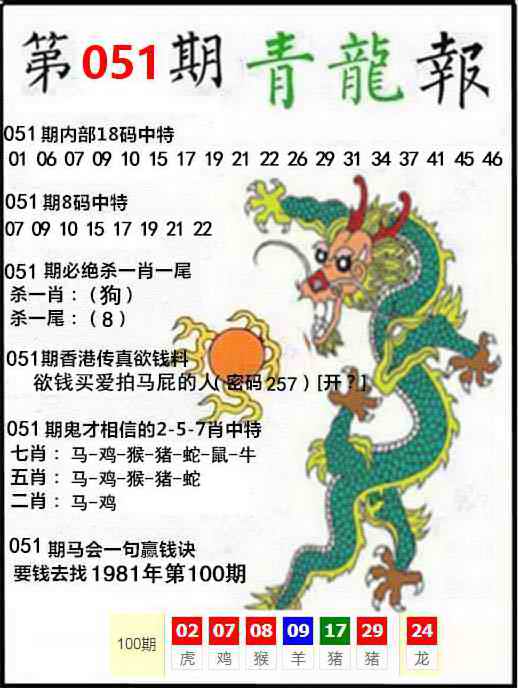 第051期青龍報
051期内部18码中特
01 06 07 09 10 15 17 19 21 22 26 29 31 34 37 41 45 46
051期8码中特
07 09 10 15 17 19 21 22
051 期必绝杀一肖一尾
杀一肖：（狗）
杀一尾：（8）
051期香港传真欲钱料
欲钱买爱拍马屁的人(密码257)[开？]
051期鬼才相信的2-5-7肖中特
七肖：马-鸡-猴-猪-蛇-鼠-牛
五肖：马-鸡-猴-猪-蛇
二肖：马-鸡
051期马会一句赢钱诀
要钱去找1981年第100期
100期 02 07 08 09 17 29 24
虎 鸡 猴 羊 猪 猪 龙